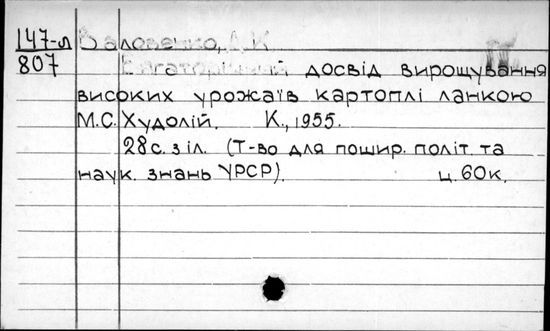 147-л Валовенко, А.К.
807 Багаторічний досвід вирощування
високих урожаїв картоплі ланкою
М.С. Худолій. К., 1955.
28 с. з іл. (Т-во для пошир. політ. та
наук. знань УРСР). ц. 60 к.